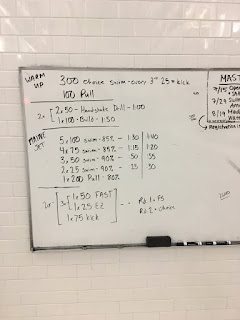 WARM UP
300 choice swim - every 3rd 25 = kick
100 Pull
2x
2x50 - Handshake Drill - 1:00
1x100 - Build - 1:50
MAINE SET
5x100 swim - 85% - 1:30 1:40
4x75 swim - 85% - 1:15 1:20
3x50 swim - 90% - 50 55
2x25 swim - 90% - 25 30
1x200 Pull - 80%
2x
3x
1x50 FAST
1x25 EZ
1x75 kick
Rd. 1 = FS
Rd. 2 = choice
MAST
7/15 Open
7/29
8/19
Registration is